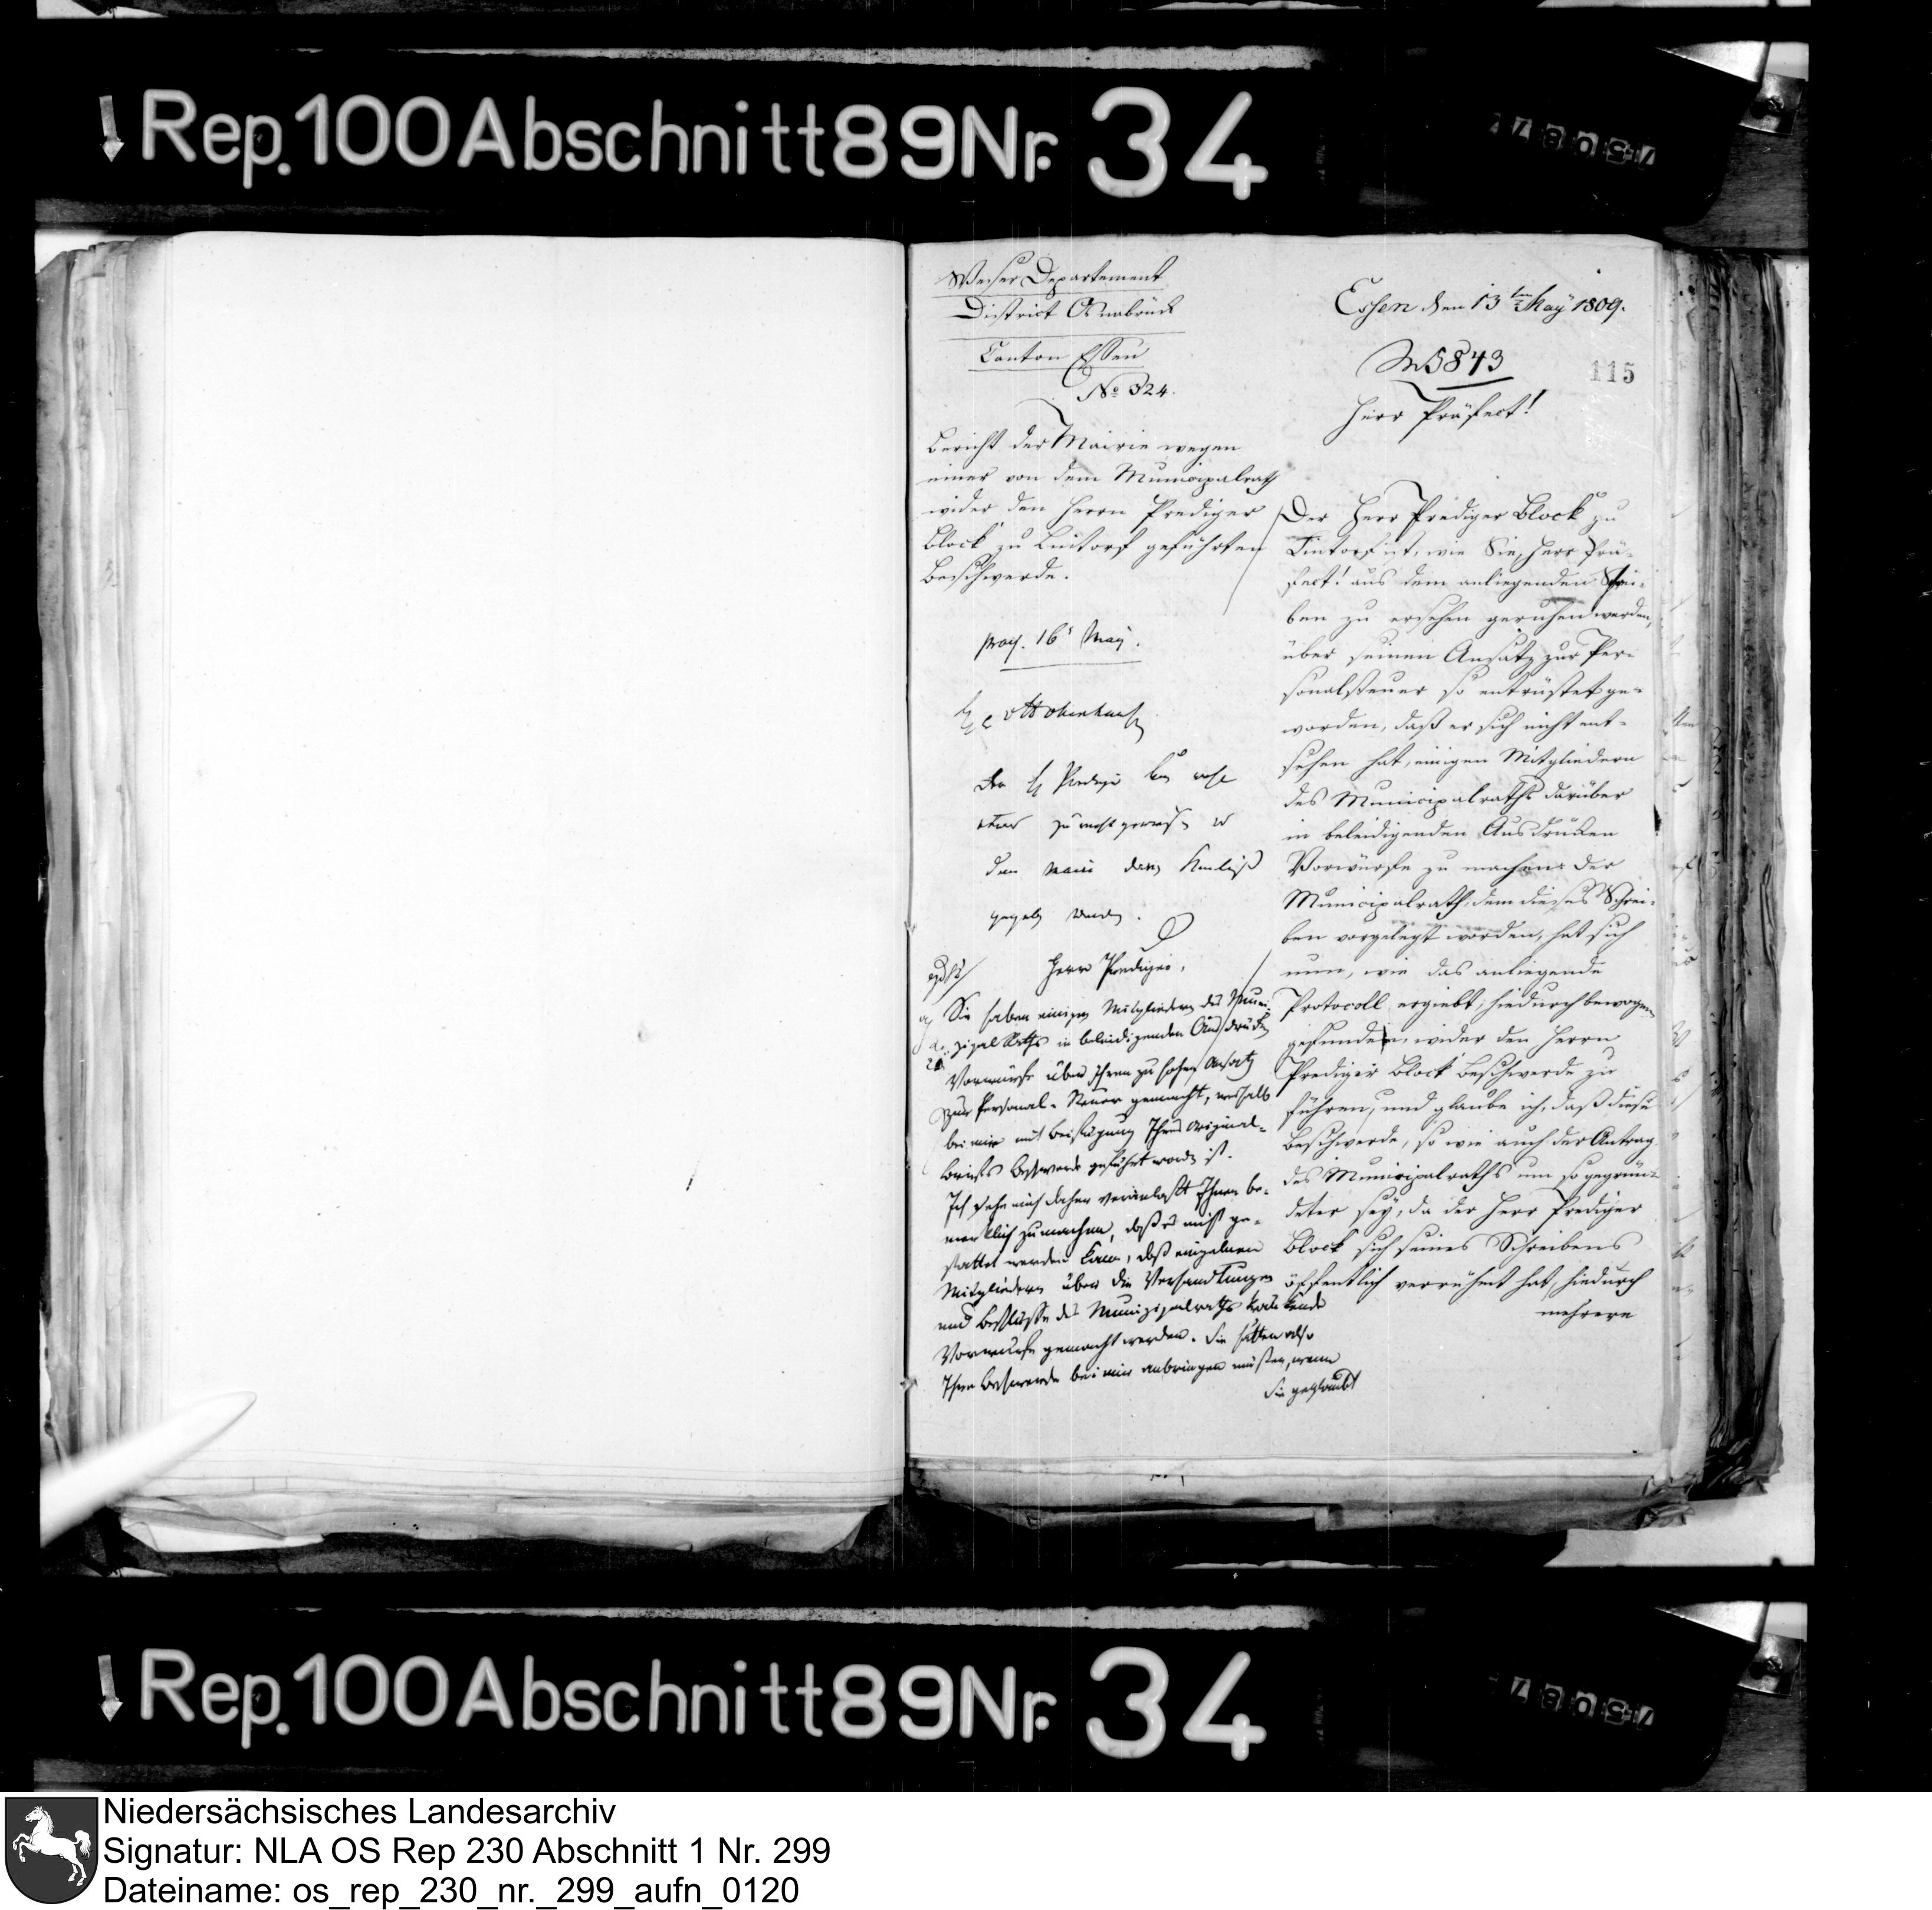 Rep. 100 Abschnitt 89 Nr. 34
Weser Departement
District Osnabrück
Canton Essen
No 324.
Bericht der Mairie wegen
einer von dem Municipalrath
wider den Herrn Prediger
Block zu Lintorf geführten
Beschwerde.
16 May.
Der H Prediger
zurecht gewiesen
dem Maire
gegeben werden.
Herr Prediger,
Sie haben einigen Mitgliedern des Muni-
zipal Raths in beleidigenden Ausdrücken
Vorwürfe über Ihren zu hohen Ansatz
zur Personal-Steuer gemacht, weshalb
bei mir mit Beifügung Ihres Original-
briefes Beschwerde geführt worden ist.
Ich sehe mich daher veranlaßt Ihnen be-
merklich zu machen, daß es nicht ge-
stattet werden kann, daß einzelnen
Mitgliedern über die Verhandlungen
und Beschlüsse des Munizipalraths kränkende
Vorwürfe gemacht werden. Sie hätten also
Ihre Beschwerde bei mir anbringen müssen, wenn
Sie geglaubt
Essen den 13ten May 1809.
5843
115
Herr Präfect!
Der Herr Prediger Block zu
Lintorf ist, wie Sie, Herr Prä-
fect! aus dem anliegenden Schrei-
ben zu ersehen geruhen werden,
über seinen Ansatz zur Per-
sonalsteuer so entrüstet ge-
worden, daß er sich nicht ent-
sehen hat, einigen Mitgliedern
des Municipalraths darüber
in beleidigenden Ausdrücken
Vorwürfe zu machen: der
Municipalrath, dem dieses Schrei-
ben vorgelegt worden, hat sich
nun, wie das anliegende
Protocoll ergiebt, hiedurch bewogen
gefunden, wider den Herrn
Prediger Block Beschwerde zu
führen, und glaube ich, daß diese
Beschwerde, so wie auch der Antrag
des Municipalraths um so gegrün-
deter sey, da der Herr Prediger
Block sich seines Schreibens
öffentlich gerühmt hat, hiedurch
mehrere
Rep. 100 Abschnitt 89 Nr. 34
Niedersächsisches Landesarchiv
Signatur: NLA OS Rep 230 Abschnitt 1 Nr. 299
Dateiname: os_rep_230_nr._299_aufn_0120